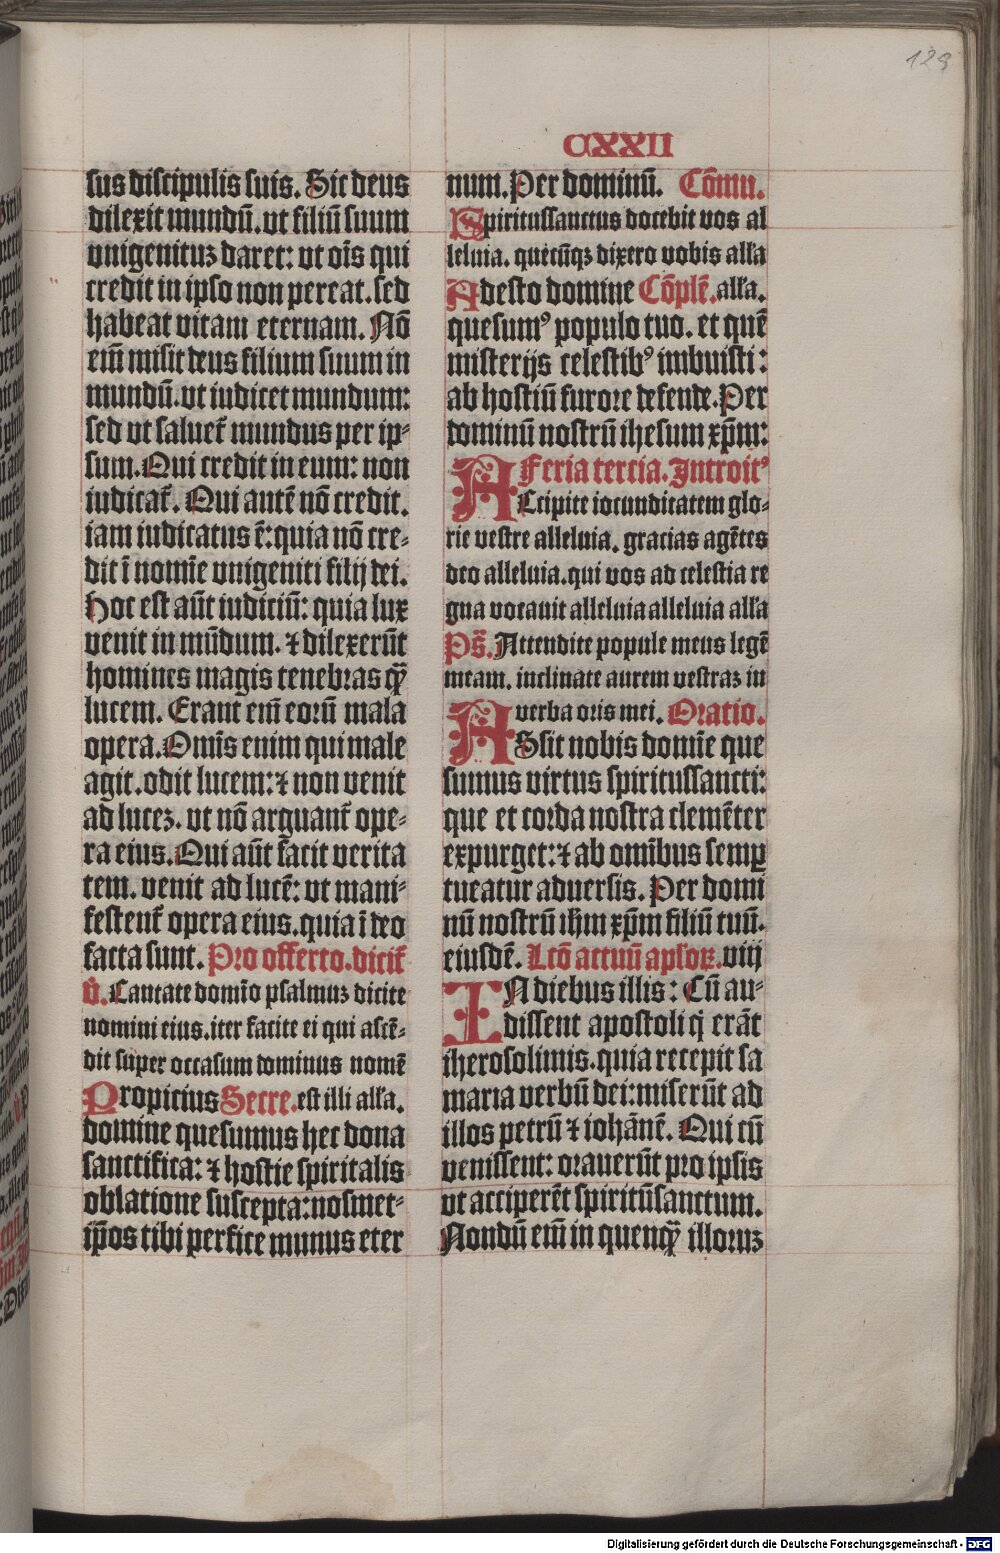 123
CXXII
sus discipulis suis. Sic deus
dilexit mundū. vt filiū suum
vnigenituz daret: vt oīs qui
credit in ipso non pereat. sed
habeat vitam eternam. Nō
em̄ misit deus filium suum in
mundū. vt iudicet mundum:
sed vt saluet᷑ mundus per ip⸗
sum. Qui credit in eum: non
iudicat᷑. Qui autē nō credit.
iam iudicatus ē: quia nō cre⸗
dit ī nomīe vnigeniti filij dei.
Hoc est aūt iudiciū: quia lux
venit in mūdum. ⁊ dilexerūt
homines magis tenebras q̄ꝫ
lucem. Erant em̄ eorū mala
opera. Omīs enim qui male
agit. odit lucem: ⁊ non venit
ad lucez. vt nō arguant᷑ ope⸗
ra eius. Qui aūt facit verita
tem. venit ad lucē: vt mani⸗
festent᷑ opera eius. quia ī deo
facta sunt. Pro offerto. dicit᷑
V̄. Cantate domīo psalmuz dicite
nomini eius. iter facite ei qui ascē⸗
dit super occasum dominus nomē
Propicius Secre. est illi all'a.
domine quesumus hec dona
sanctifica: ⁊ hostie spiritalis
oblatione suscepta: nosmet⸗
ip̄os tibi perfice munus eter
num. Per dominū. Cōmu.
Spiritussanctus docebit vos al
leluia. quecūqz dixero vobis all'a
Adesto domine Cōplē. all'a.
quesumꝰ populo tuo. et quē
misterijs celestibꝰ imbuisti:
ab hostiū furore defende. Per
dominū nostrū ihesum xp̄m:
Feria tercia. Introitꝰ
Accipite iocunditatem glo⸗
rie vestre alleluia. gracias agētes
deo alleluia. qui vos ad celestia re
gna vocauit alleluia alleluia all'a
Ps̄. Attendite popule meus legē
meam. inclinate aurem vestraz in
verba oris mei. Oratio.
Assit nobis domīe que
sumus virtus spiritussancti:
que et corda nostra clemēter
expurget: ⁊ ab omībus semꝑ
tueatur aduersis. Per domi
nū nostrū ihm̄ xp̄m filiū tuū.
eiusdē. Lc̄o actuū apl'oꝝ. viij
In diebus illis: Cū au⸗
dissent apostoli q̄ erāt
iherosolimis. quia recepit sa
maria verbū dei: miserūt ad
illos petrū ⁊ iohānē. Qui cū
venissent: orauerūt pro ipsis
vt acciperēt spiritūsanctum.
Nondū em̄ in quenq̄ꝫ illoruz
Digitalisierung gefördert durch die Deutsche Forschungsgemeinschaft - DFG